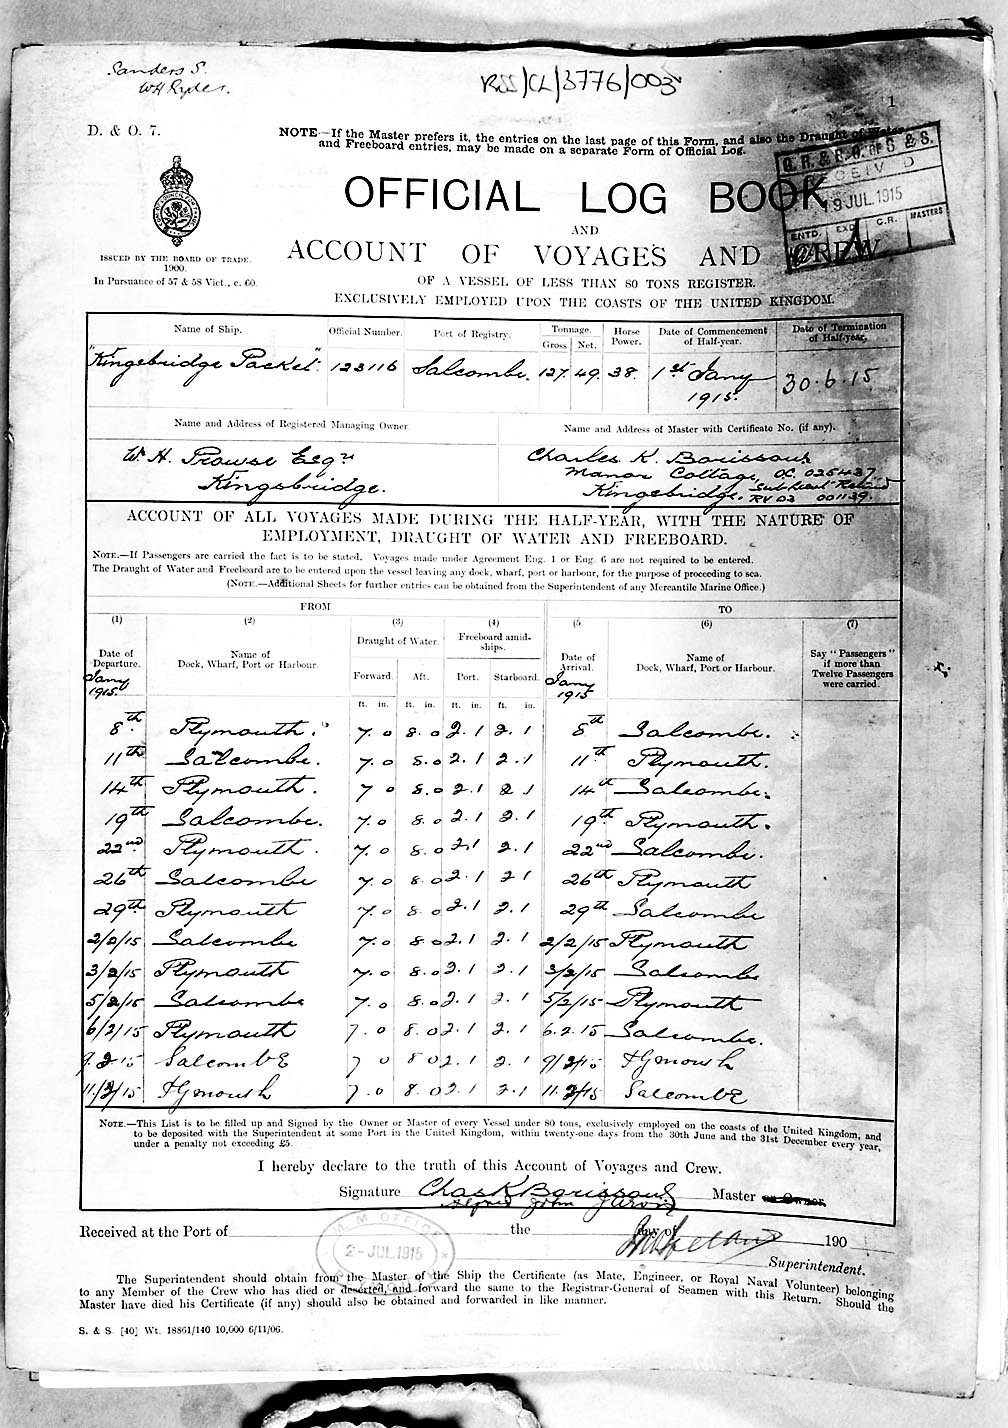 Sanders S.
WH Ryder.
RSS/CL/3776/003
1
D. & O. 7.
NOTE—If the Master prefers it, the entries on the last page of this Form, and also the Draught of Water
and Freeboard entries, may be made on a separate Form of Official Log.
19 JUL 1915
ENTD. EXD. C.R. MASTERS
OFFICIAL LOG BOOK
AND
ACCOUNT OF VOYAGES AND CREW,
OF A VESSEL OF LESS THAN 80 TONS REGISTER.
EXCLUSIVELY EMPLOYED UPON THE COASTS OF THE UNITED KINGDOM.
ISSUED BY THE BOARD OF TRADE.
1900.
In Pursuance of 57 & 58 Vict., c. 60.
Name of Ship. Official Number. Port of Registry. Tonnage. Gross Net. Horse Power. Date of Commencement of Half-year. Date of Termination of Half-year.
"Kingsbridge Packet" 123116 Salcombe. 127. 49. 38. 1st Jany 1915. 30.6.15
Name and Address of Registered Managing Owner. Name and Address of Master with Certificate No. (if any).
W. H. Prowse Esqre
Kingsbridge.
Charles K.
Manor Cottage, OC. 025437
Kingsbridge.
RV 03 001139.
ACCOUNT OF ALL VOYAGES MADE DURING THE HALF-YEAR, WITH THE NATURE OF
EMPLOYMENT, DRAUGHT OF WATER AND FREEBOARD.
NOTE.—If Passengers are carried the fact is to be stated. Voyages made under Agreement Eng. 1 or Eng. 6 are not required to be entered.
The Draught of Water and Freeboard are to be entered upon the vessel leaving any dock, wharf, port or harbour, for the purpose of proceeding to sea.
(NOTE.—Additional Sheets for further entries can be obtained from the Superintendent of any Mercantile Marine Office.)
FROM TO
(1) (2) (3) (4) (5 (6) (7)
Date of Departure. Name of Dock, Wharf, Port or Harbour. Draught of Water. Forward. Aft. Freeboard amid-ships. Port. Starboard. Date of Arrival. Name of Dock, Wharf, Port or Harbour. Say "Passengers" if more than Twelve Passengers were carried.
Jany 1915. Jany 1915
ft. in. ft. in. ft. in. ft. in.
8th Plymouth. 7. 0 8. 0 2. 1 2. 1 8th Salcombe.
11th Salcombe. 7. 0 8. 0 2. 1 2. 1 11th Plymouth.
14th Plymouth. 7 0 8. 0 2. 1 2 1 14th Salcombe.
19th Salcombe. 7. 0 8. 0 2. 1 2. 1 19th Plymouth.
22nd Plymouth. 7. 0 8. 0 2. 1 2. 1 22nd Salcombe.
26th Salcombe 7. 0 8. 0 2. 1 2 1 26th Plymouth
29th Plymouth 7. 0 8. 0 2. 1 2. 1 29th Salcombe
2/2/15 Salcombe 7. 0 8. 0 2. 1 2. 1 2/2/15 Plymouth
3/2/15 Plymouth 7. 0 8. 0 2. 1 2. 1 3/2/15 Salcombe
5/2/15 Salcombe 7. 0 8. 0 2. 1 2. 1 5/2/15 Plymouth
6/2/15 Plymouth 7. 0 8. 0 2. 1 2. 1 6.2.15 Salcombe.
9.2.15 Salcombe 7 0 8 0 2. 1 2. 1 9/2/15 Plymouth
11/2/15 Plymouth 7. 0 8. 0 2. 1 2. 1 11.2/15 Salcombe
NOTE.—This List is to be filled up and Signed by the Owner or Master of every Vessel under 80 tons, exclusively employed on the coasts of the United Kingdom, and
to be deposited with the Superintendent at some Port in the United Kingdom, within twenty-one days from the 30th June and the 31st December every year,
under a penalty not exceeding £5.
I hereby declare to the truth of this Account of Voyages and Crew.
Signature Chas K Master or Owner.
Alfred John
Received at the Port of the day of 190
M. M. OFFICE
2-JUL.1915
Superintendent.
The Superintendent should obtain from the Master of the Ship the Certificate (as Mate, Engineer, or Royal Naval Volunteer) belonging
to any Member of the Crew who has died or deserted, and forward the same to the Registrar-General of Seamen with this Return. Should the
Master have died his Certificate (if any) should also be obtained and forwarded in like manner.
S. & S. [40] Wt. 18861/140 10,000 6/11/06.